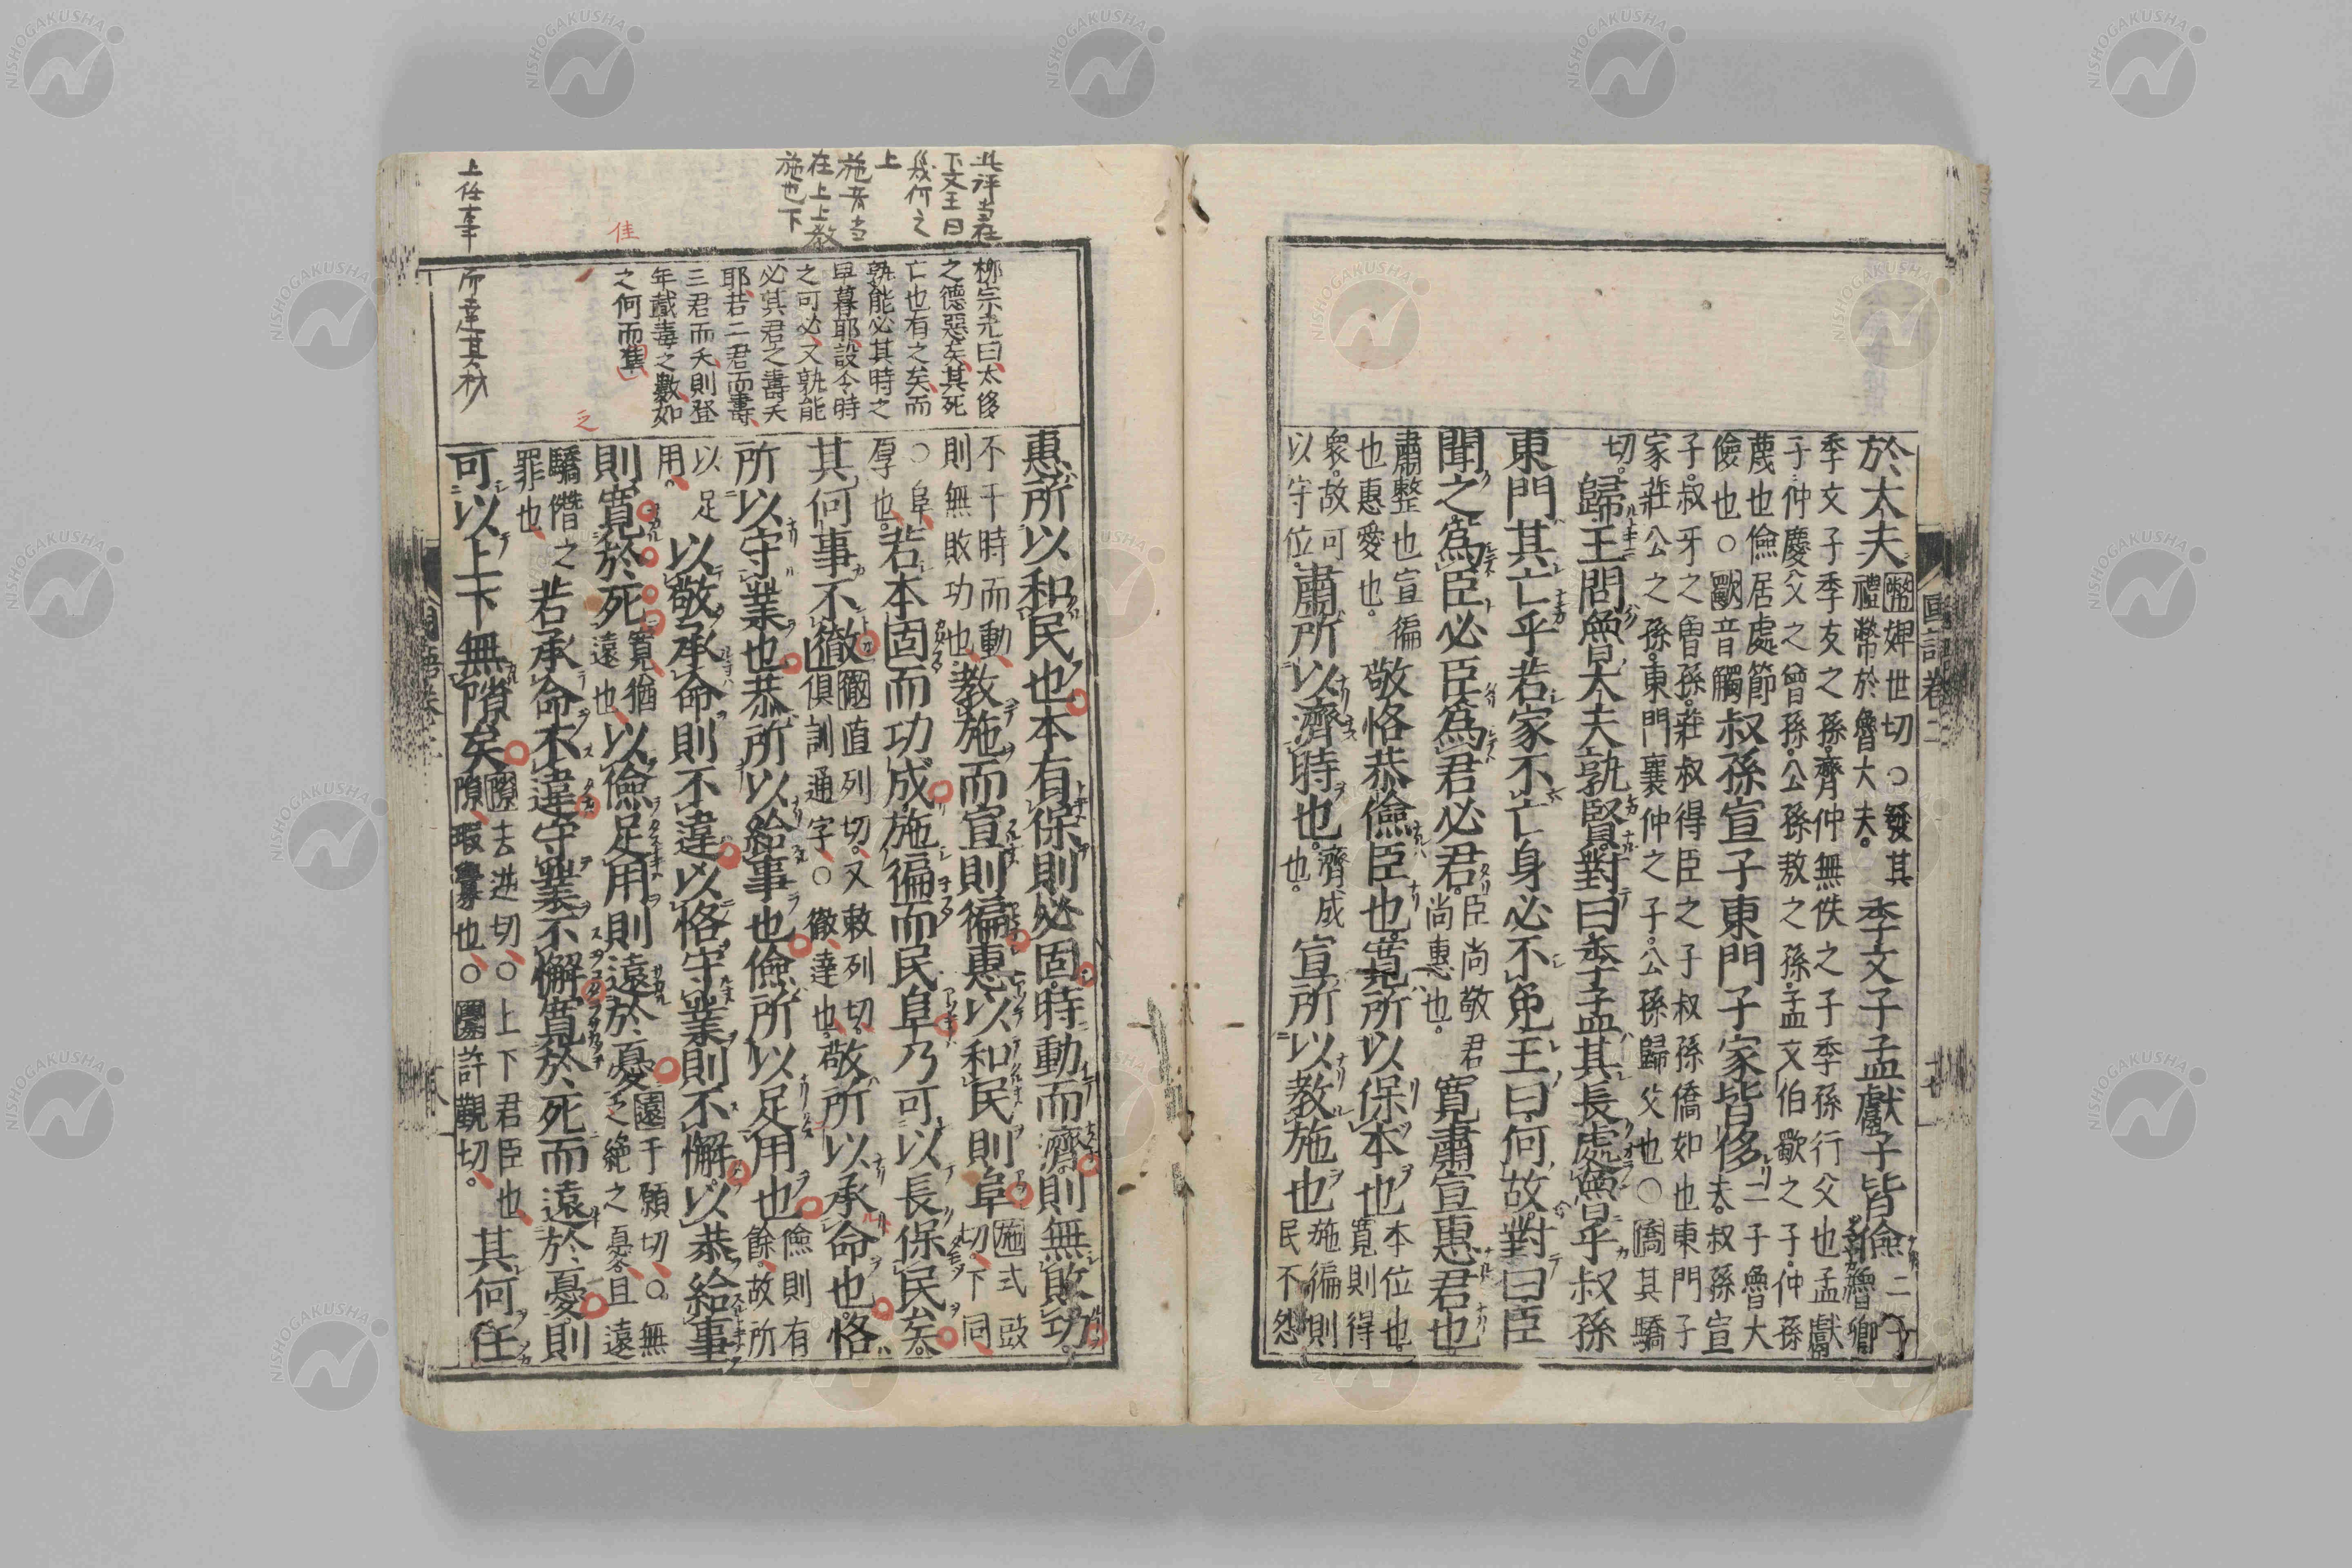 於大夫幣婢世切○發其禮幣於魯大夫。季文子孟獻子皆儉二子魯卿
季文子季友之孫齊仲無佚之子季孫行父也孟獻子仲慶父之曾孫公孫敖之孫孟文伯歜之子仲孫
蔑也儉居處節儉也○歜音觸叔孫宣子東門子家皆侈二子魯大夫。叔孫宣
子叔牙之曾孫莊叔得臣之子叔孫僑如也東門子家莊公之孫東門襄仲之子公孫歸父也○僑其驕
切。歸王問魯大夫孰賢對曰季孟其長處魯乎叔孫
東門其亡乎若家不亡身必不免王曰何故對曰臣
聞之爲臣必臣爲君必君臣尚敬君尚惠也。寬肅宣惠君也
肅整也宣徧也惠愛也。敬恪恭儉臣也寬所以保本也本位也寬則得
衆故可以守位肅所以濟時也濟成也。宣所以教施也施徧則民不怨
國語卷二
十七
惠所以和民也本有保則必固時動而濟則無敗功
不干時而動則無敗功也教施而宣則徧惠以和民則阜施式豉切下同
○阜厚也若本固而功成施徧而民阜乃可以長保民矣
其何事不徹徹直列切又敕列切俱訓通字○徹達也敬所以承命也恪
所以守業也恭所以給事也儉所以足用也儉則有餘故所
以足用。以敬承命則不違以恪守業則不懈以恭給事
則寬於死寬猶遠也以儉足用則遠於憂遠于願切○無乏絕之憂且遠
驕僭之罪也若承命不違守業不懈寬於死而遠於憂則
可以上下無隙矣隙去逆切○上下君臣也隙瑕釁也○釁許覲切。其何任
柳宗元曰太侈
之德惡矣其死
亡也有之矣而
孰能必其時之
早暮耶設令時
之可必又孰能
必其君之壽夭
耶若二君而壽
三君而夭則登
年載毒之數如
之何而準
此評當在
下文王曰
幾何之
上
施音當
在上上教
施也下
佳
乏
上任事
所達其材